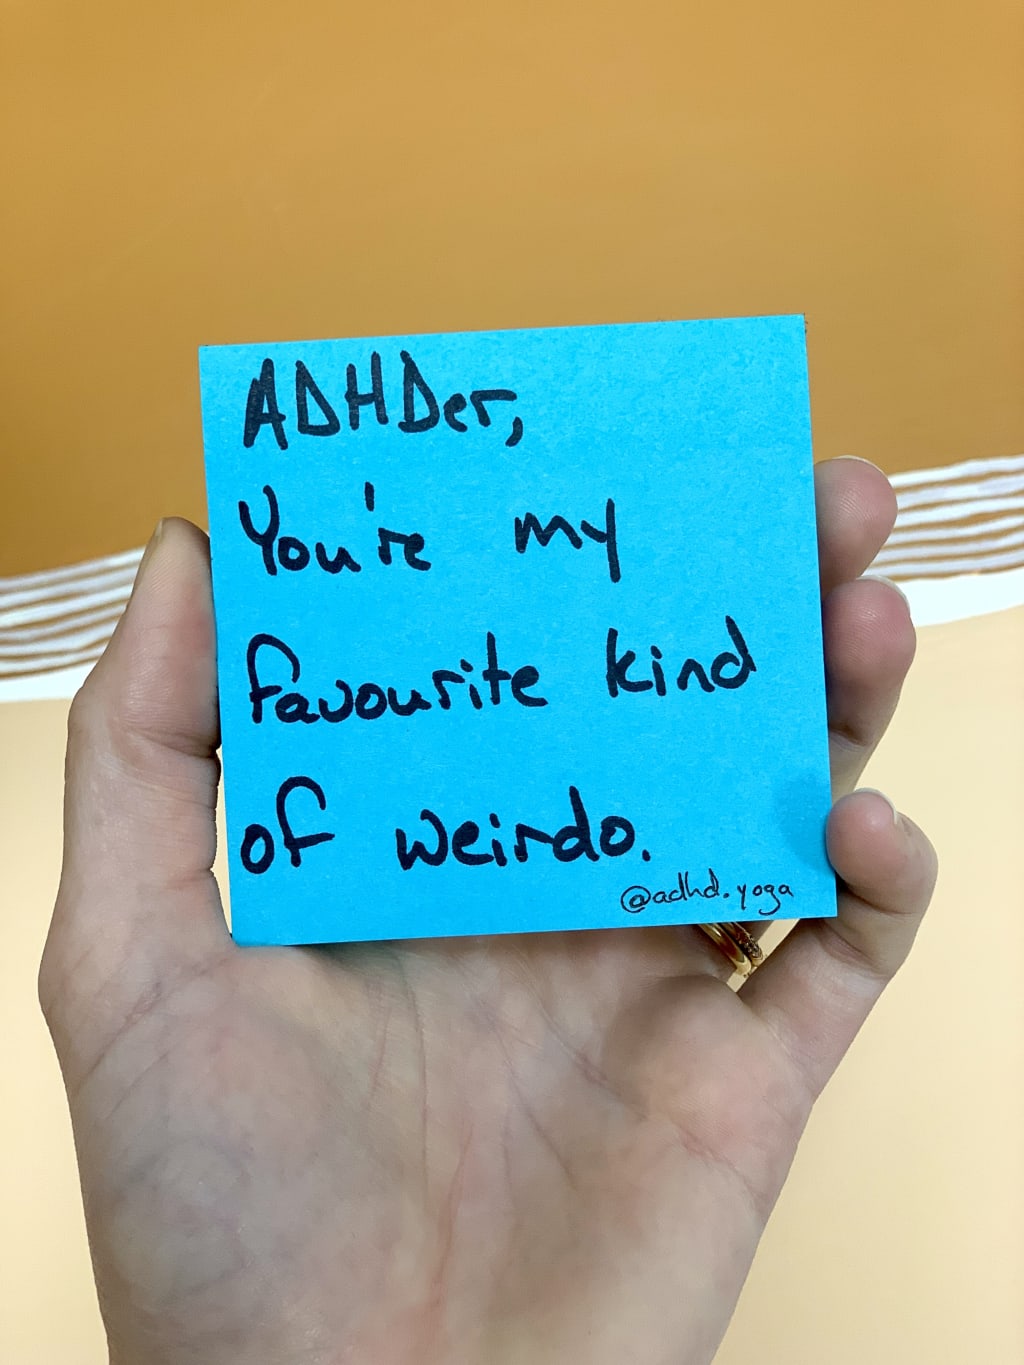 ADHDer,
You're my
favourite kind
of weirdo.
@adhd.yoga